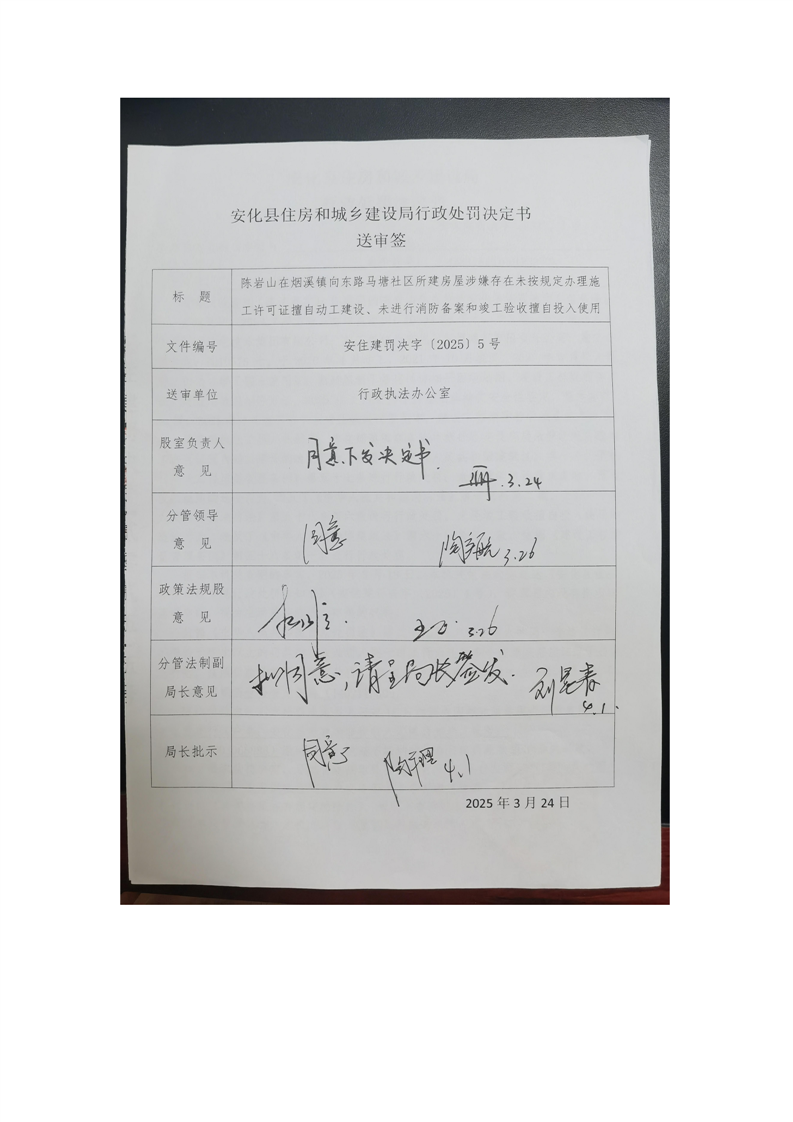 安化县住房和城乡建设局行政处罚决定书
送审签
标 题
陈岩山在烟溪镇向东路马塘社区所建房屋涉嫌存在未按规定办理施
工许可证擅自动工建设、未进行消防备案和竣工验收擅自投入使用
文件编号
安住建罚决字〔2025〕5 号
送审单位
行政执法办公室
股室负责人
意 见
同意下发决定书.
3.24
分管领导
意 见
同意
3.26
政策法规股
意 见
3.26
分管法制副
局长意见
拟同意,请呈局长签发.
4.1.
局长批示
同意
4.1
2025 年 3 月 24 日